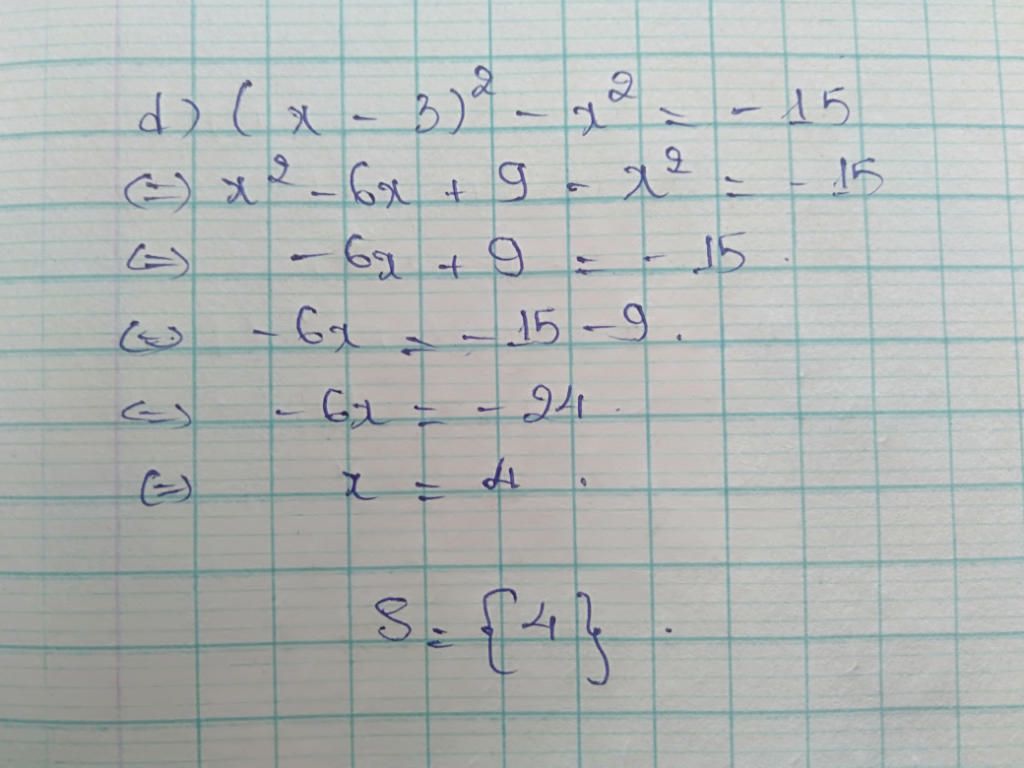 d) (x - 3)² - x² = - 15
(=) x² - 6x + 9 - x² = - 15
(=) - 6x + 9 = - 15.
(=) - 6x = - 15 - 9.
(=) - 6x = - 24.
(=) x = 4.
S = {4}.